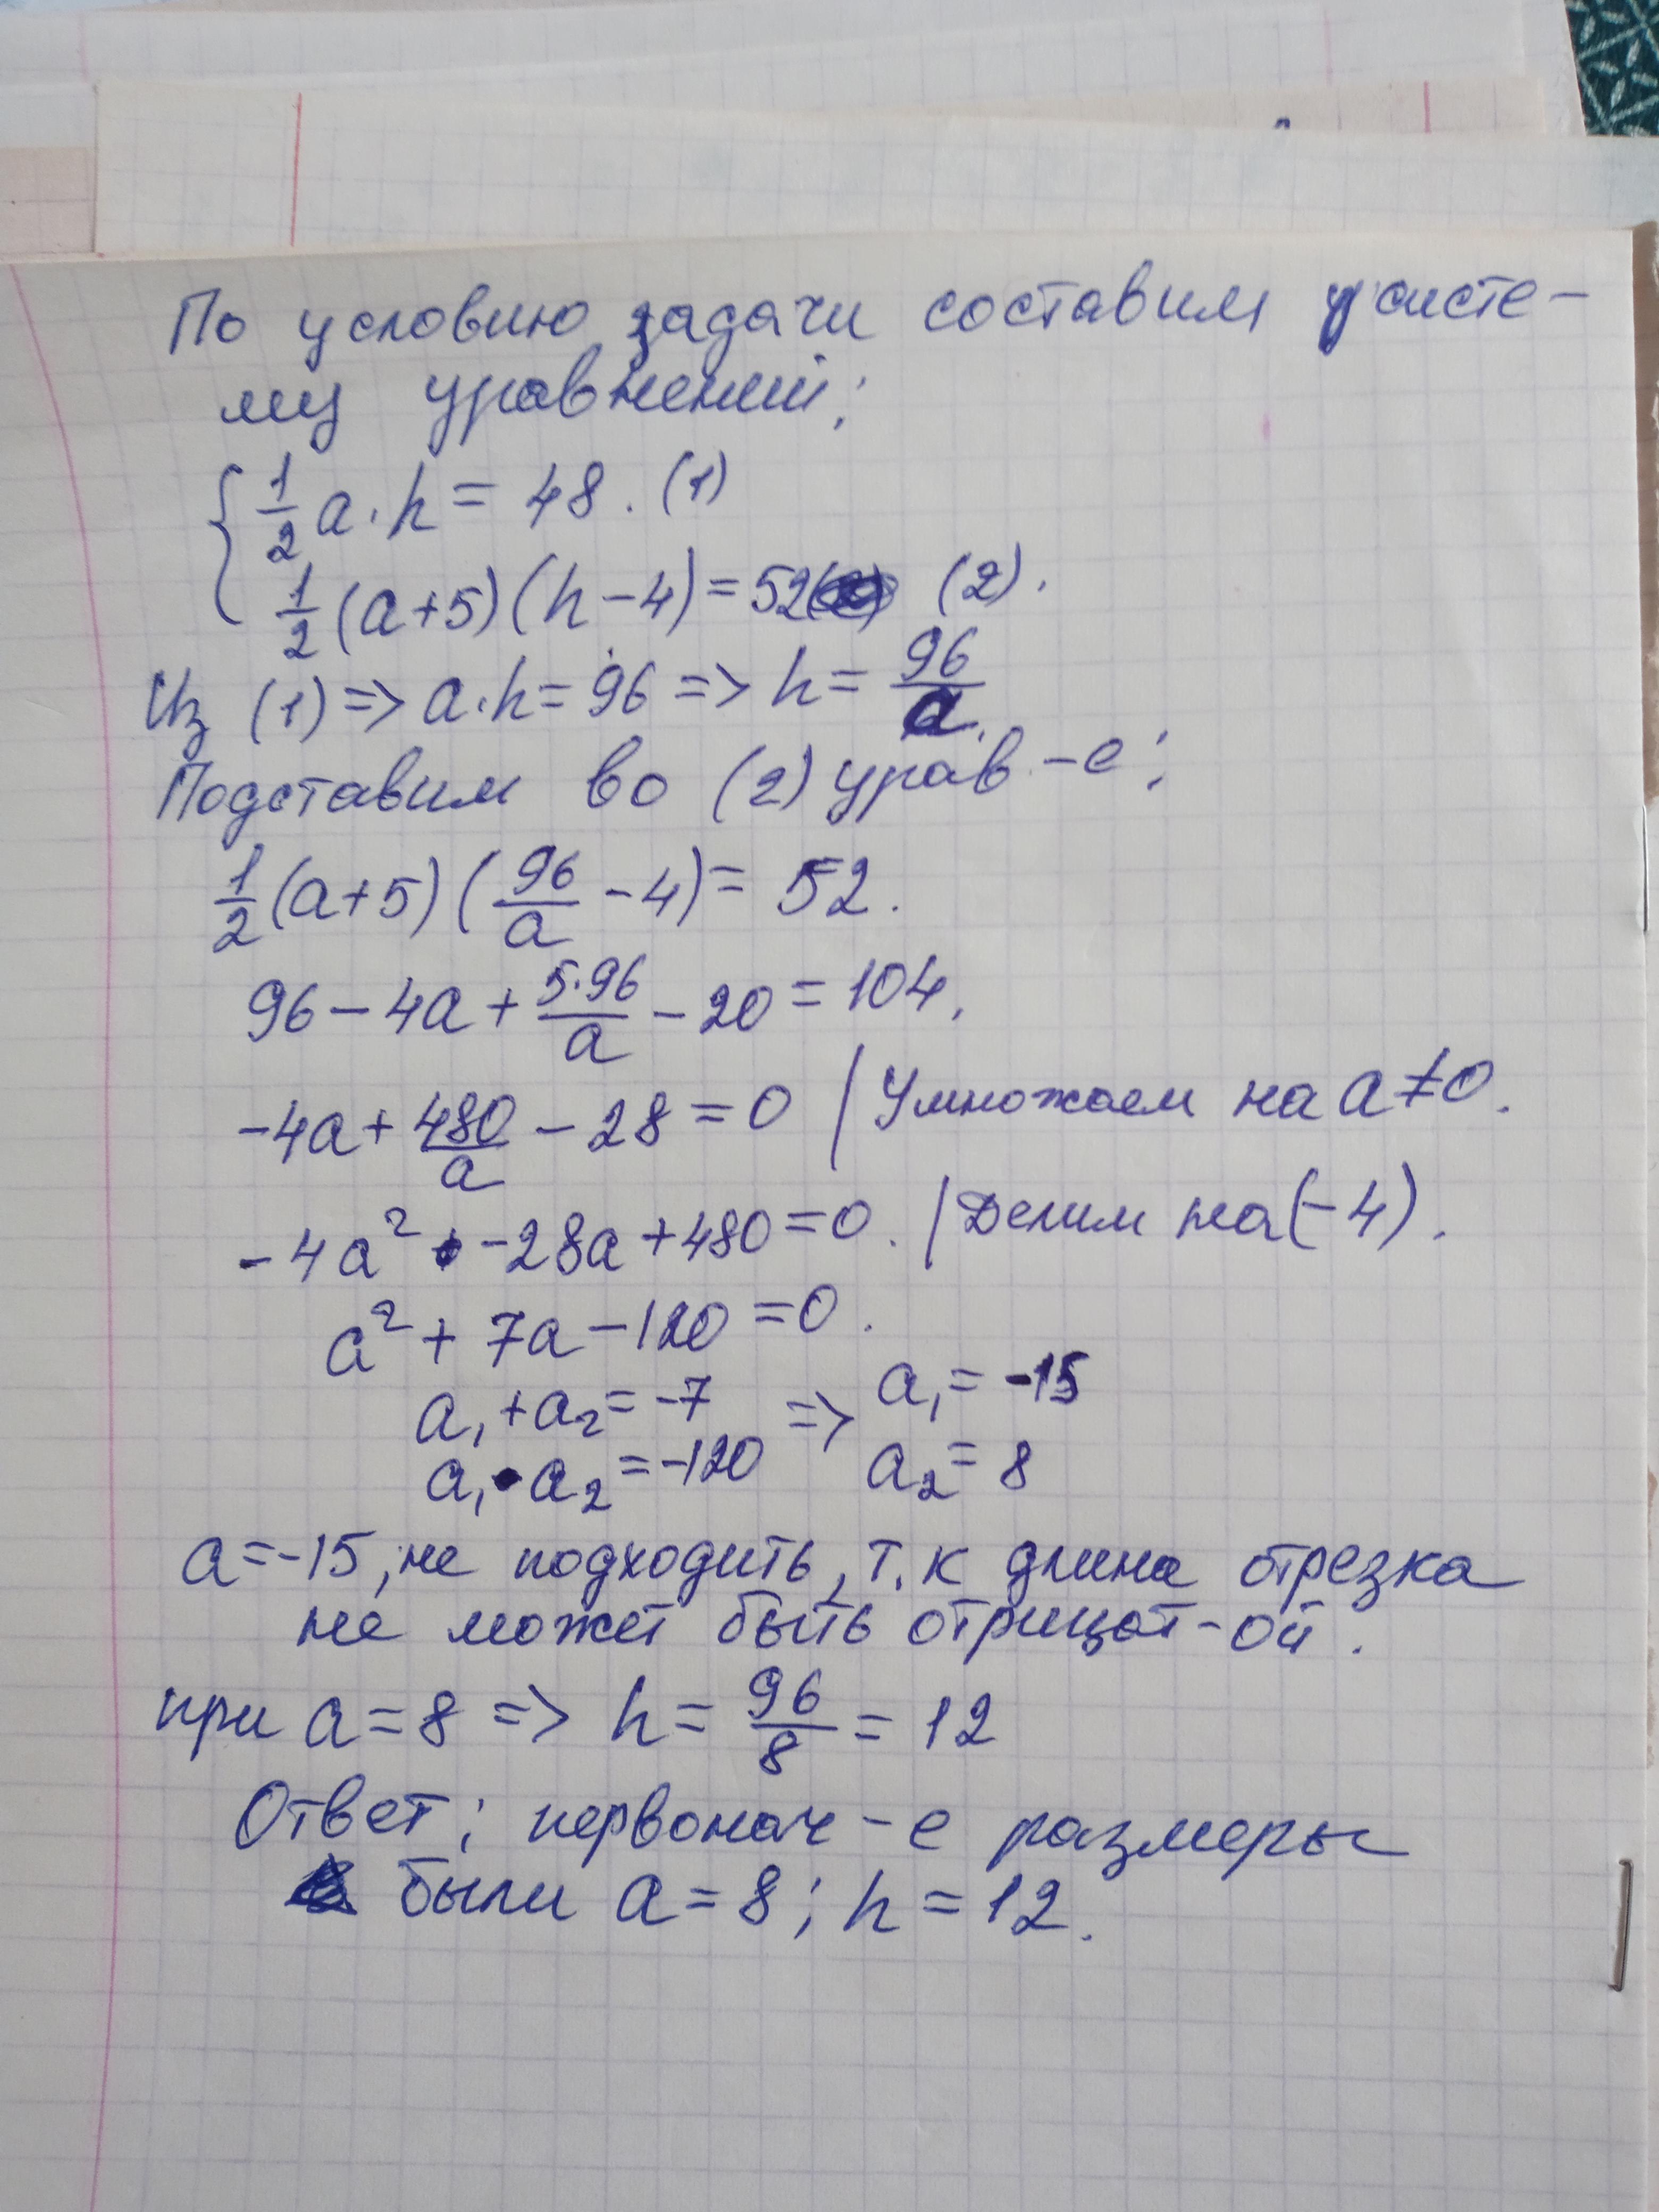 По условию задачи составим систе-
му уравнений:
{ 1/2 a·h = 48. (1)
1/2 (a+5)(h-4) = 52 (2).
Из (1) => a·h = 96 => h = 96/a.
Подставим во (2) урав-е:
1/2 (a+5)(96/a - 4) = 52.
96 - 4a + 5·96/a - 20 = 104.
-4a + 480/a - 28 = 0 / Умножаем на a≠0.
-4a² - 28a + 480 = 0. / Делим на (-4).
a² + 7a - 120 = 0.
a₁ + a₂ = -7 => a₁ = -15
a₁ • a₂ = -120 a₂ = 8
a = -15, не подходить, т.к длина отрезка
не может быть отрицат-ой.
при a = 8 => h = 96/8 = 12
Ответ: первонач-е размеры
были a = 8; h = 12.